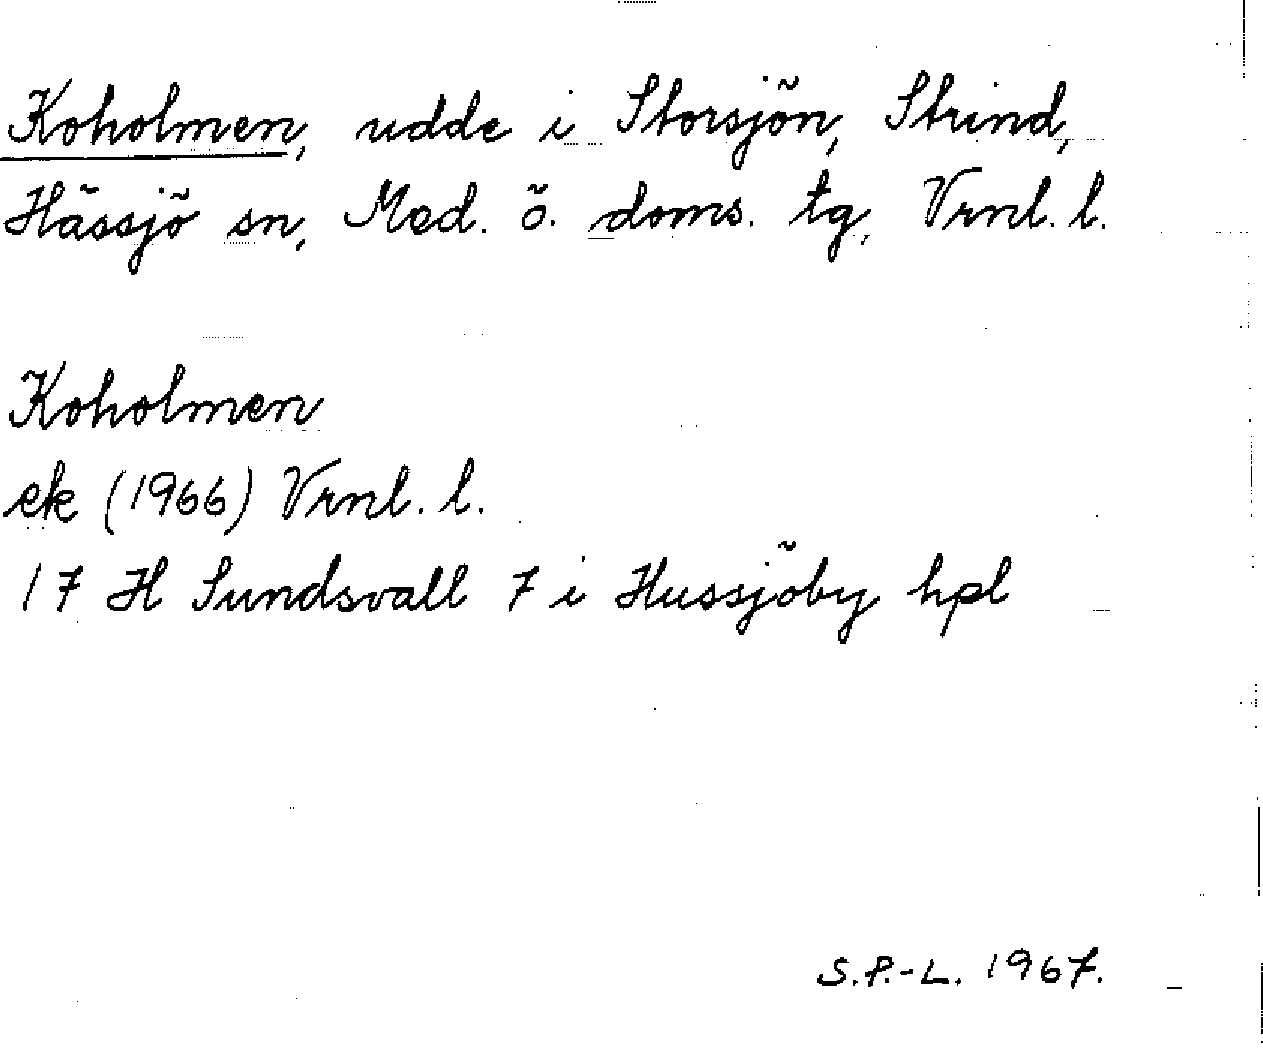 Koholmen, udde i Storsjön, Strind,
Hässjö sn, Med. ö. doms. tg, Vrnl. l.
Koholmen
ek (1966) Vrnl. l.
17 H Sundsvall 7 i Hussjöby hpl
S.P.-L. 1967.